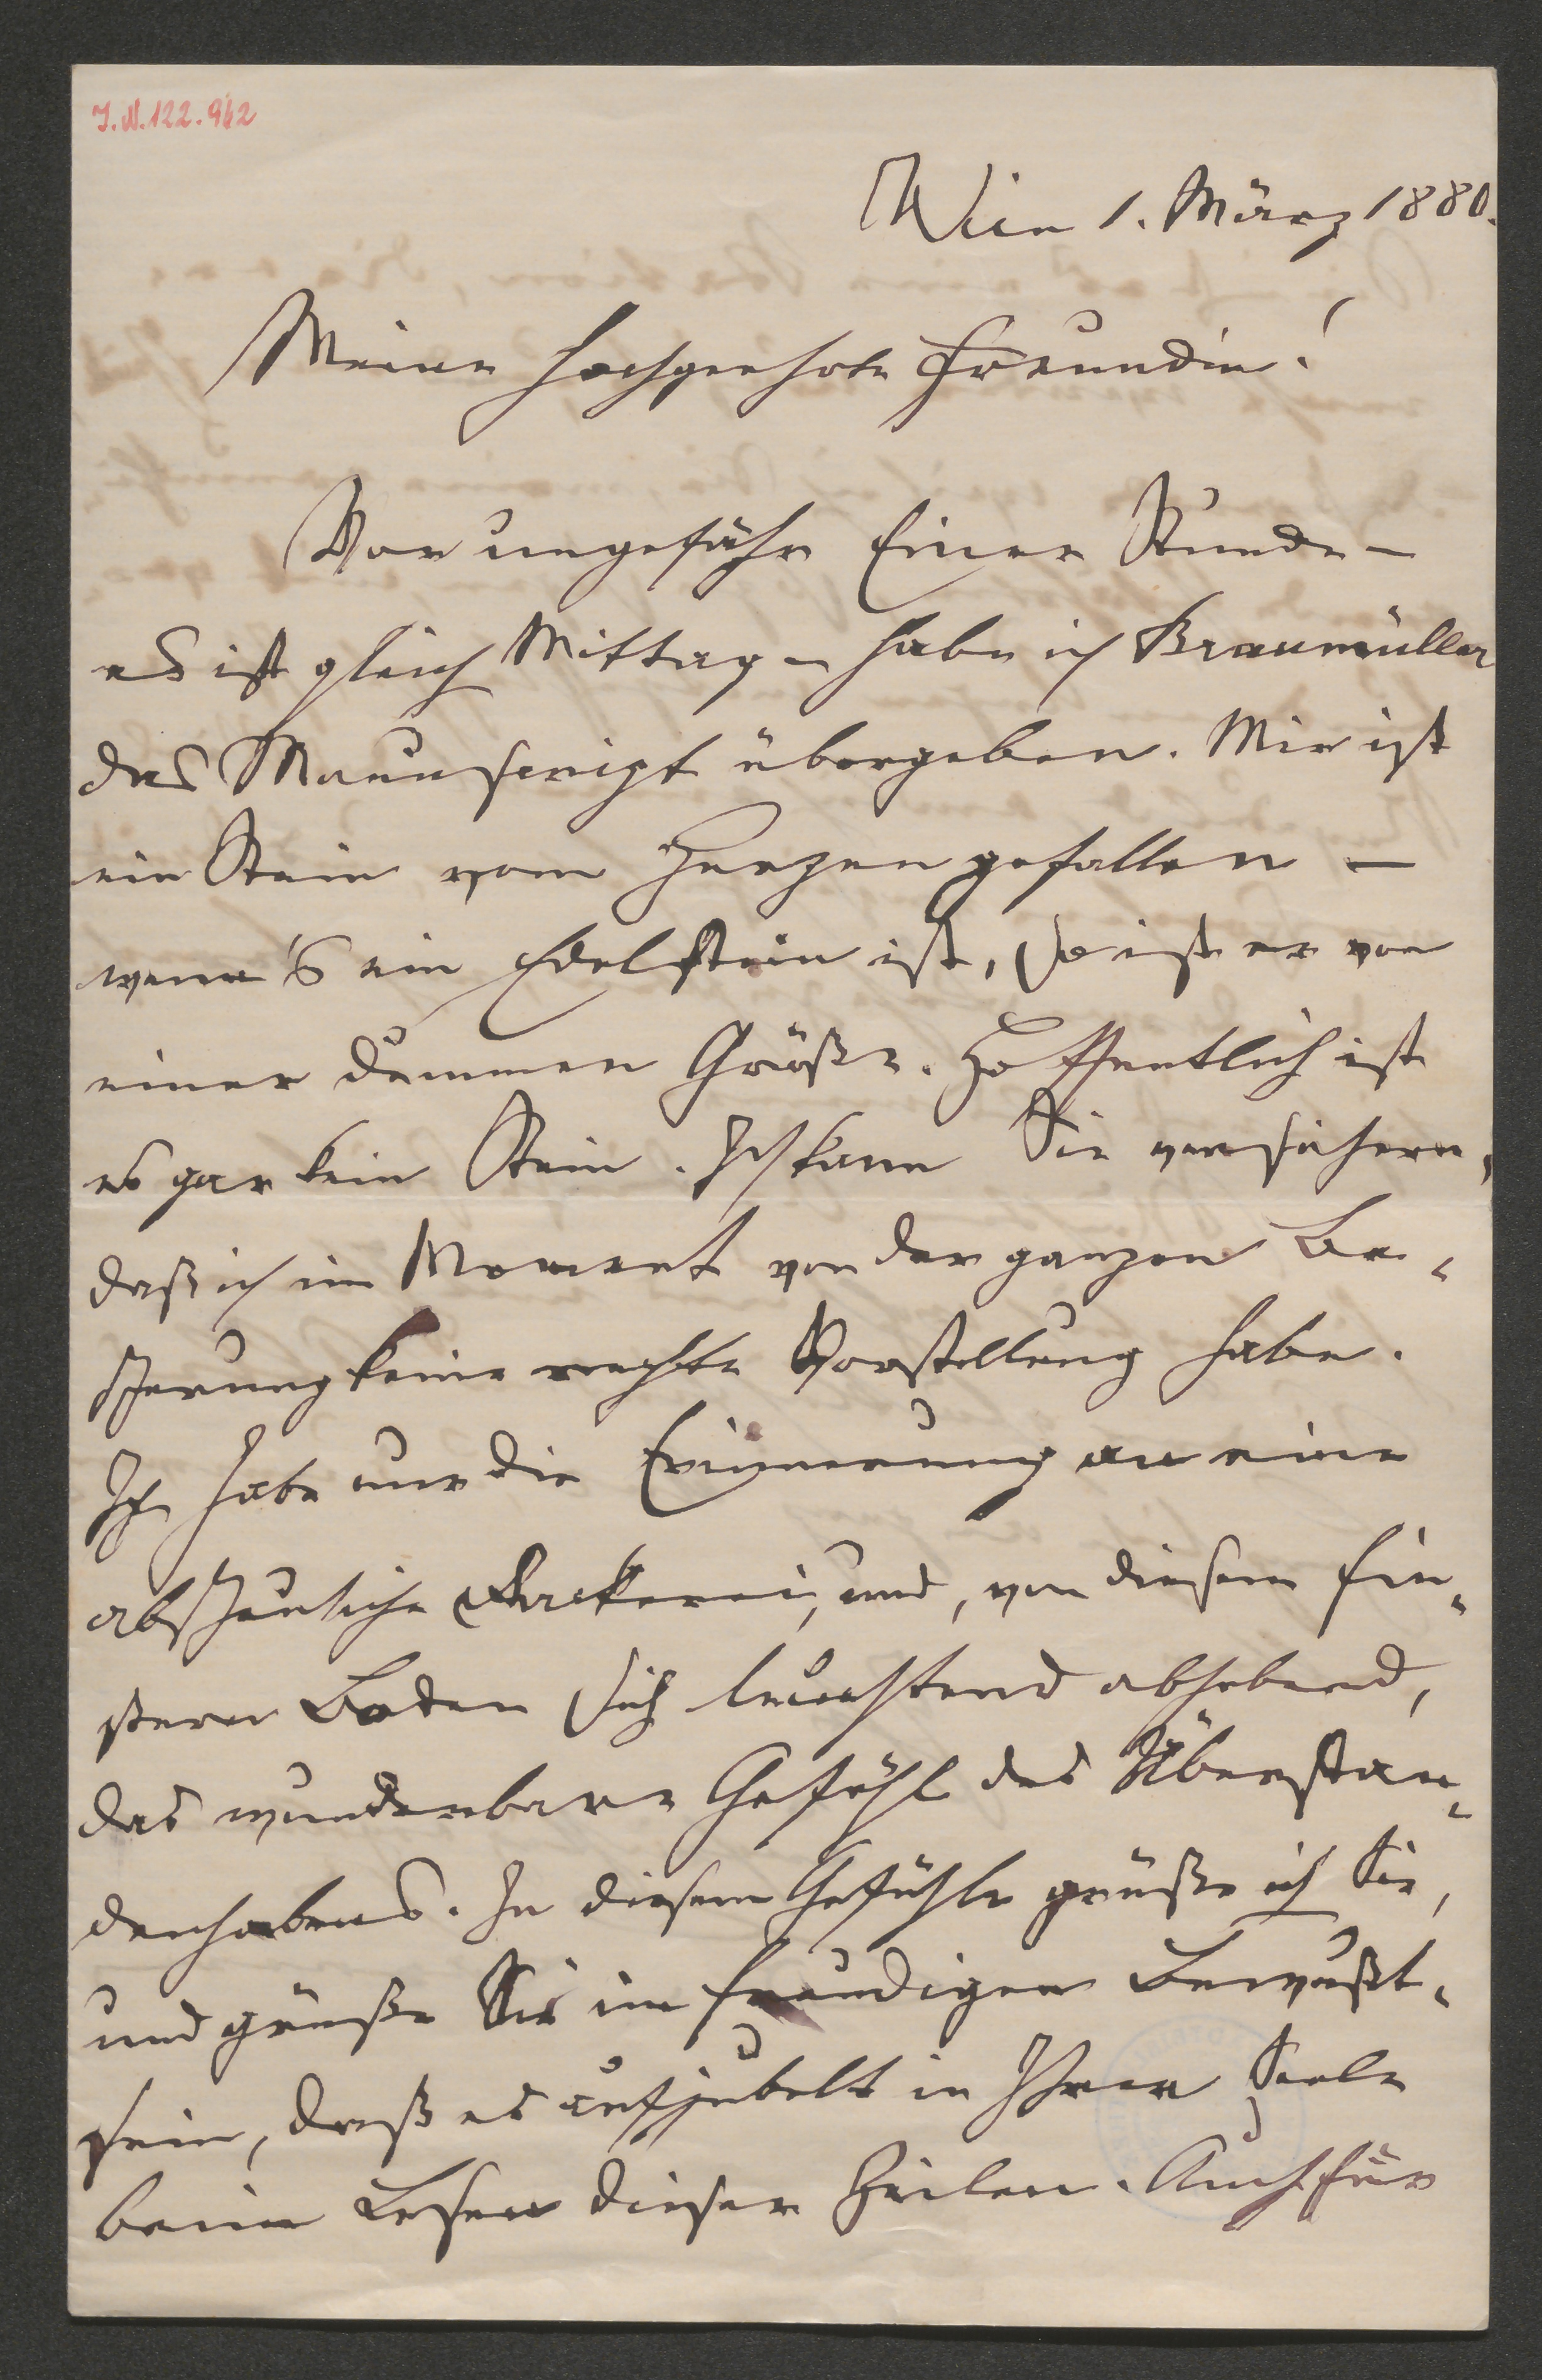 I.N. 122.962
Wien 1. März 1880.
Meine hochgeehrte Freundin!
Vor ungefähr Einer Stunde –
es ist gleich Mittag – habe ich Braumüller
das Manuscript übergeben. Mir ist
ein Stein vom Herzen gefallen –
wenn's ein Edelstein ist, so ist er von
einer dummen Größe. Hoffentlich ist
es gar kein Stein. Ich kann Sie versichern,
daß ich im Moment von der ganzen Be-
scherung keine rechte Vorstellung habe.
Ich habe nur die Erinnerung an eine
abscheuliche Rackerei, und, von diesem fin-
stern Boden sich leuchtend abhebend,
das wunderbare Gefühl des Überstan-
denhabens. In diesem Gefühle grüße ich Sie,
und grüße Sie im freudigen Bewußt-
sein, daß es aufjubelt in Ihrer Seele
beim Lesen dieser Zeilen. Auch für